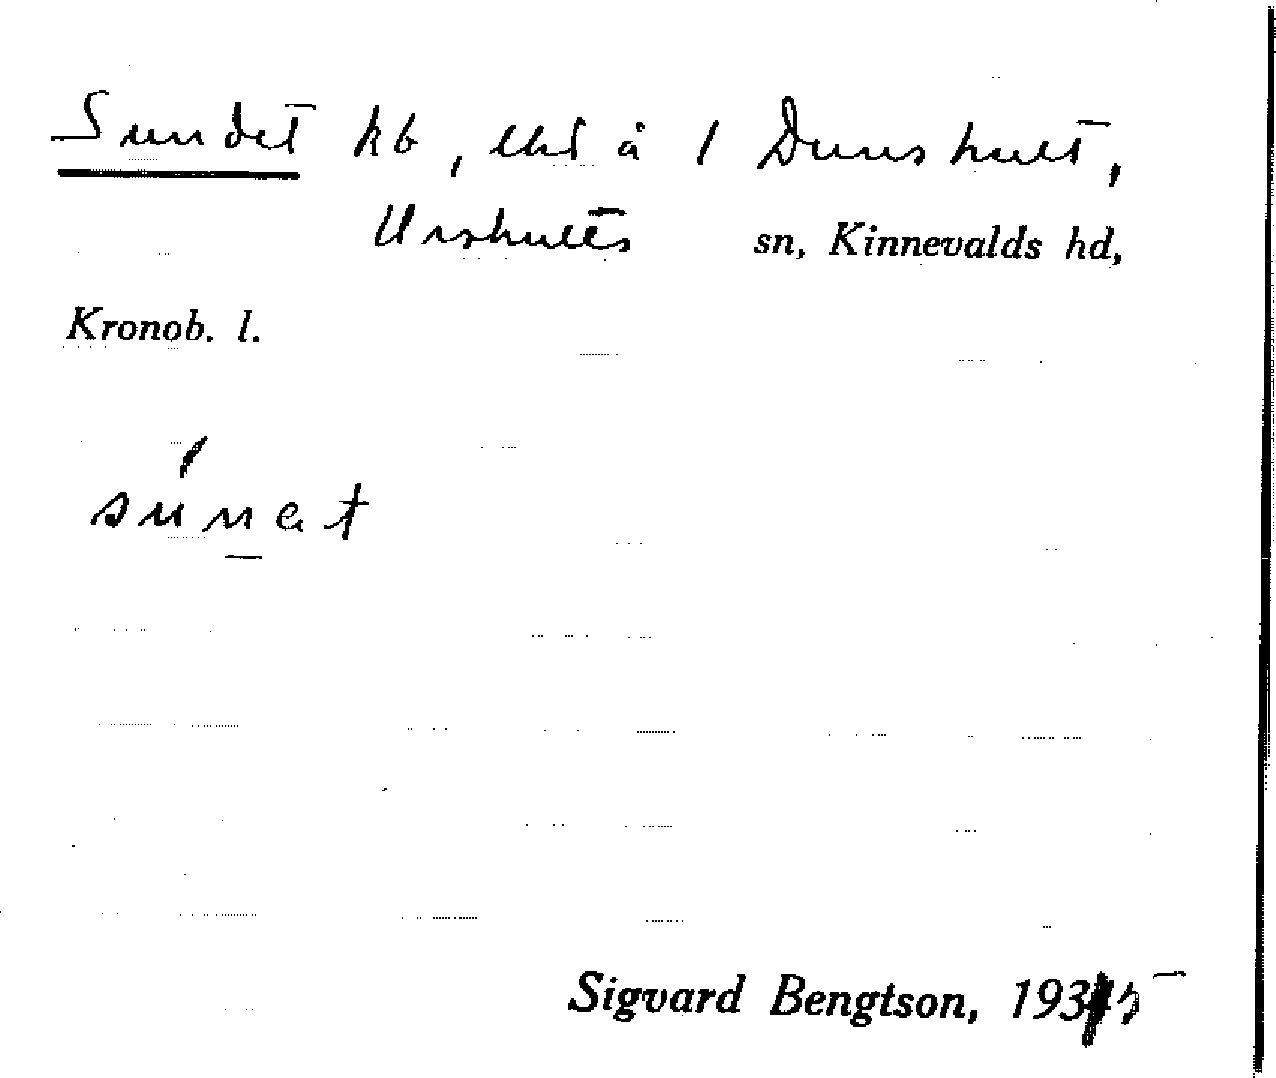 Sundet kb, lht å 1 Dunshult,
Urshults sn, Kinnevalds hd,
Kronob. l.
súnat
Sigvard Bengtson, 1935